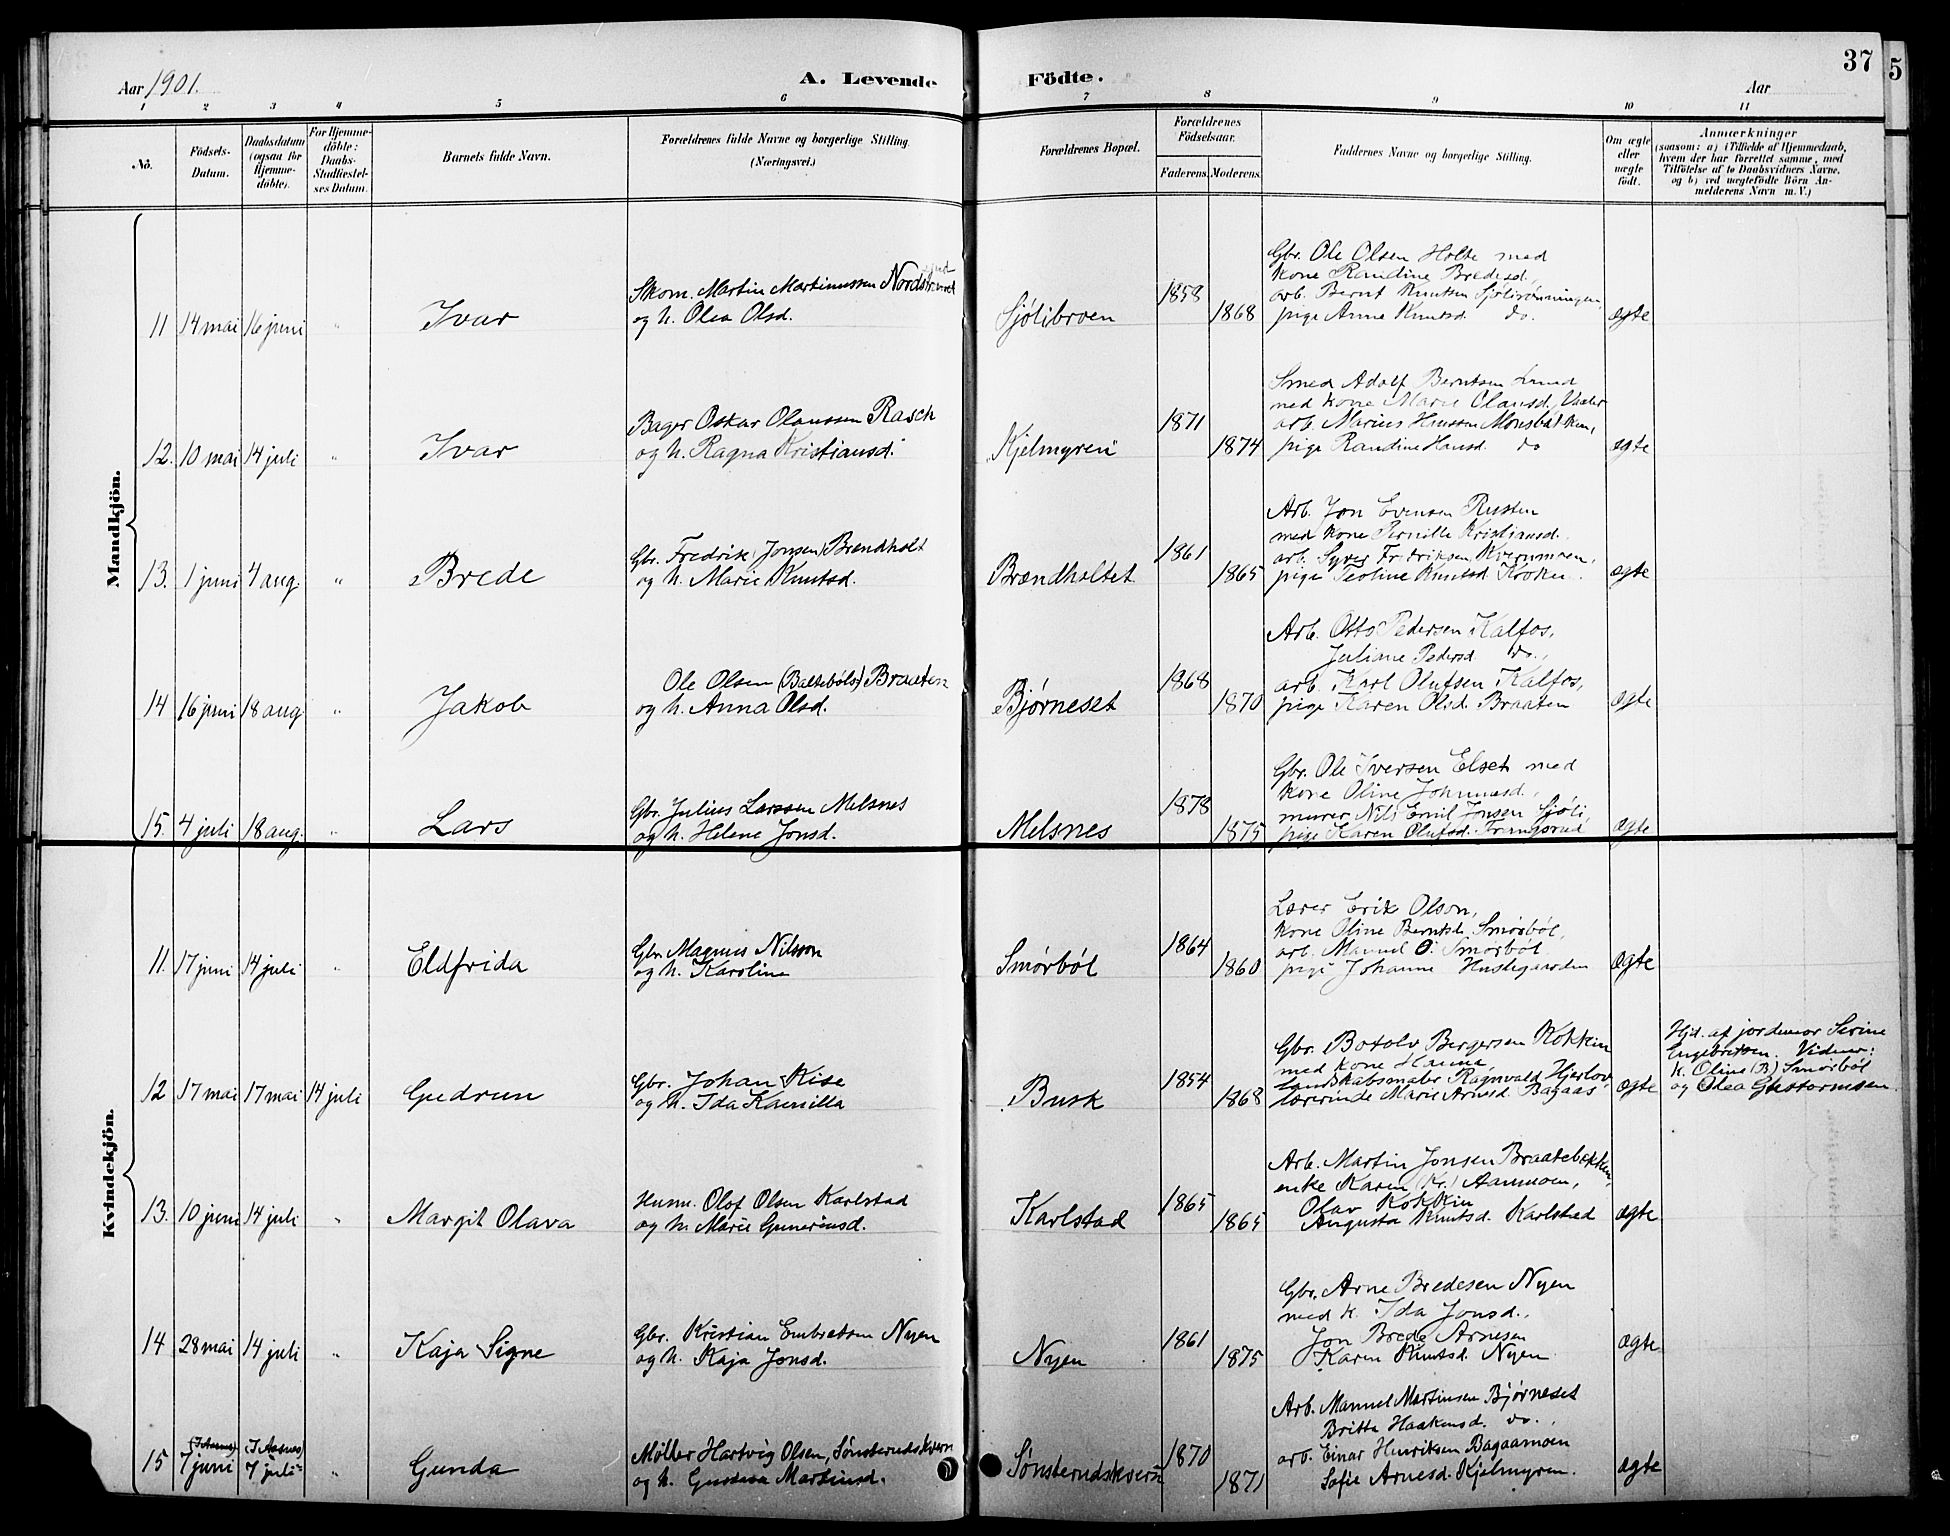 Aar 1901.
A. Levende
Födte.
Aar
37
5
1 2 3 4 5 6 7 8 9 10 11
No.
Födsels-Datum.
Daabsdatum (ogsaa for Hjemmedöbte).
For Hjemmedöbte: Daabs-Stadfæstelses Datum.
Barnets fulde Navn.
Forældrenes fulde Navne og borgerlige Stilling.
(Næringsvei.)
Forældrenes Bopæl.
Forældrenes Födselsaar.
Faderens. Moderens.
Faddernes Navne og borgerlige Stilling.
Om ægte eller uægte født.
Anmærkninger
(saasom: a) (Tilfælde af Hjemmedaab, hvem der har forrettet samme, med Tilföielse af to Daabsvidners Navne, og b) ved uægtefödte Börn Anmelderens Navn m. V.)
Mandkjön.
11 14 mai 16 juni " Ivar
Skom. Martin Martinussen Nordstrand
og h. Olea Olsd.
Sjølibroen 1858 1868
Gbr. Ole Olsen Holte med
kone Randine Bredesd.,
arb. Bernt Knutsen Sjølirønningen,
pige Anne Knutsd. do.
ægte
12. 10 mai 14 juli " Ivar
Bager Oskar Olaussen Rasch
og h. Ragna Kristiansd.
Kjelmyren 1871 1874
Smed Adolf Berntsen Lund
med kone Marie Olausd., Vaaler
arb. Marius Hansen
pige Randine Hansd. do
ægte
13. 1 juni 4 aug. " Brede
Gbr. Fredrik (Jonsen) Brendholt
og h. Marie Knutsd.
Brændholtet 1861 1865
Arb. Jon Evensen Rusten
med kone Pernille Kristiansd.
arb. Syver Fredriksen Kvernmoen,
pige Teoline Knutsd. Kroken.
ægte
14 16 juni 18 aug " Jakob
Ole Olsen (Baltebøls) Braaten
og h. Anna Olsd.
Bjørneset 1868 1870
Arb. Otto Pedersen Kalfos,
Juliane Pedersd. do.,
arb. Karl Olufsen Kalfos,
pige Karen Olsd. Braaten
ægte
15. 4 juli 18 aug. " Lars
Gbr. Julius Larssen Melsnes
og h. Helene Jonsd.
Melsnes 1878 1875
Gbr. Ole Iversen Elset med
kone Oline Johannesd.,
murer Nils Emil Jonsen Sjøli,
pige Karen Olufsd. Frangsrud
ægte
Kvindekjön.
11. 17 juni 14 juli " Eldfrida
Gbr. Magnus Nilsson
og h. Karolina
Smørbøl 1864 1860
Lærer Erik Olson,
kone Oline Berntsd. Smørbøl,
arb. Manuel O. Smørbøl
pige Johanne Hustegaarden
ægte
12 17 mai 17 mai 14 juli Gudrun
Gbr. Johan Kise
og h. Ida Kamilla
Busk 1854 1868
Gbr. Botolv Bergersen Kokkin
med kone Hanna,
landskabsmaler Ragnvald Hjerlov
lærerinde Marie Arnesd. Bagaas
ægte
Hjd. af jordmor Serine
Engebretsen. Vidner:
k. Oline (B) Smørbøl
og Olea Gustormsen
13. 10 juni 14 juli " Margit Olava
Husm. Olof Olsen Karlstad
og h. Marie Guneriusd.
Karlstad 1865 1865
Arb. Martin Jonsen Braatebækken,
enke Karen (Kr.) Aamoen,
Olav Kokkin
Augusta Knutsd. Karlstad
ægte
14 28 mai 14 juli " Kaja Signe
Gbr. Kristian Embretsen Nyen
og h. Kaja Jonsd.
Nyen 1861 1875
Gbr. Arne Bredesen Nyen
med k. Ida Jonsd.,
Jon Brede Arnesen
Karen Knutsd. Nyen
ægte
15 7 juni (I Aasnes) 7 juli " Gunda
Møller Hartvig Olsen, Sønsterudskvern
og h. Gustava Martinsd.
Sønsterudskvern 1870 1871
Arb. Manuel Martinsen Bjørneset
Britta Haakensd. do.,
arb. Einar Henriksen Bagaamoen
Sofie Arnesd. Kjelmyren.
ægte